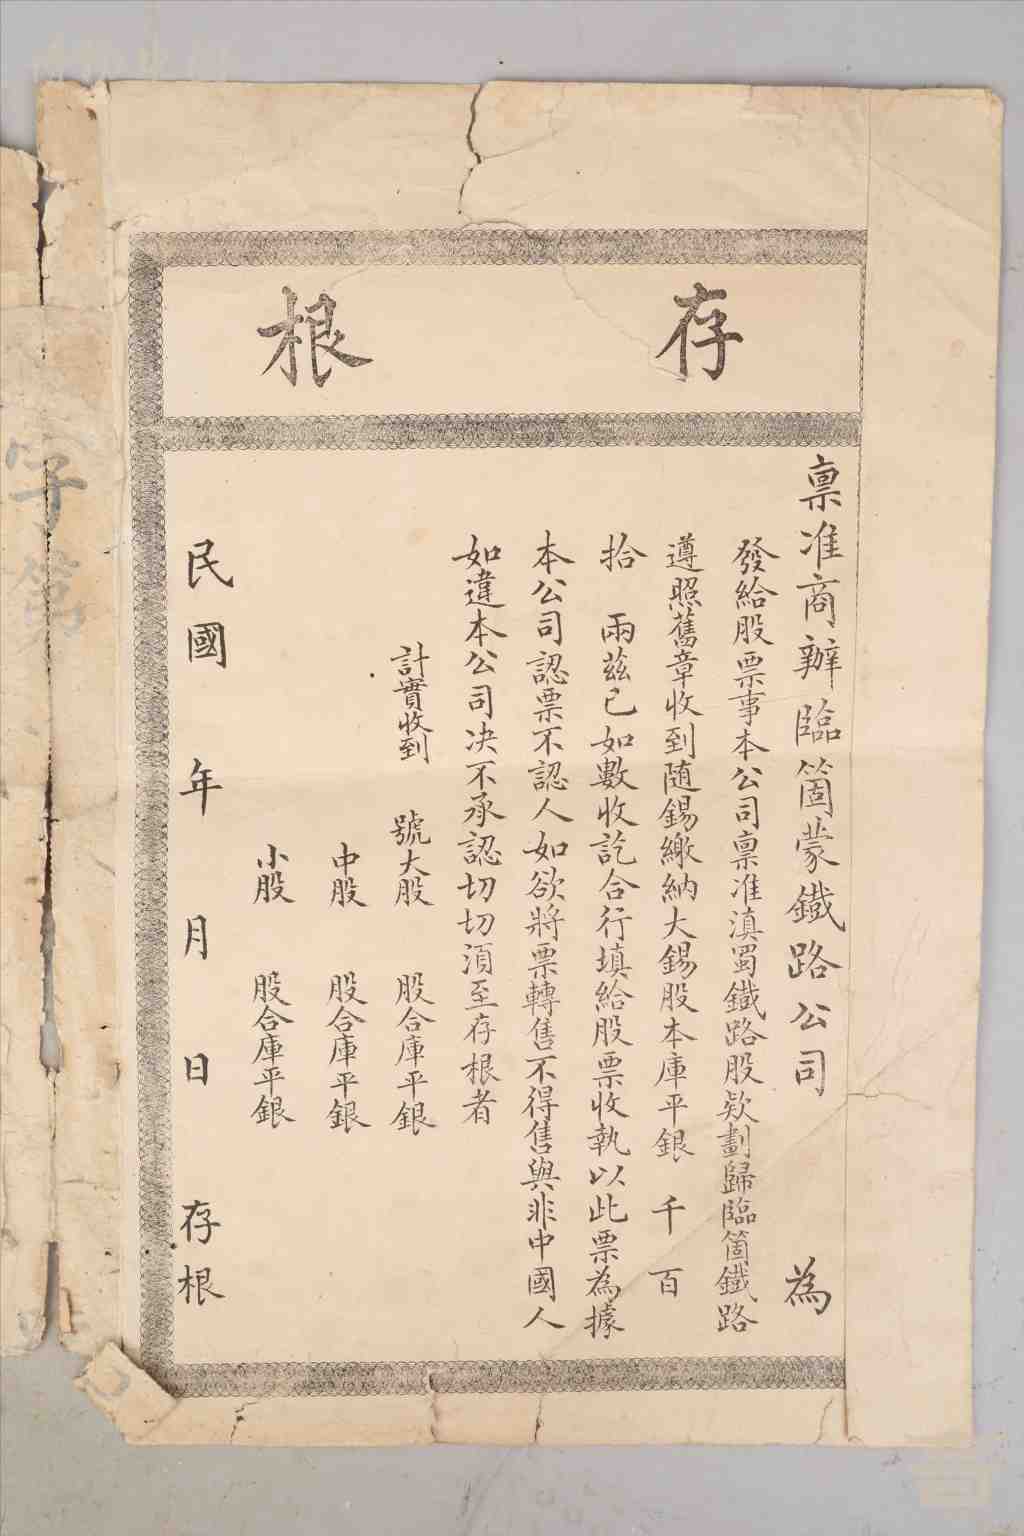 存根
禀准商辦臨箇蒙鐵路公司 為
發給股票事本公司禀准滇蜀鐵路股欵劃歸臨箇鐵路
遵照舊章收到随錫繳納大錫股本庫平銀 千 百
拾 兩茲已如數收訖合行填給股票收執以此票為據
本公司認票不認人如欲將票轉售不得售與非中國人
如違本公司决不承認切切須至存根者
計實收到 號大股 股合庫平銀
中股 股合庫平銀
小股 股合庫平銀
民國 年 月 日 存根
字第